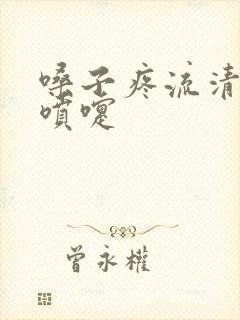 嗓子疼流清
喷嚏
曾永權